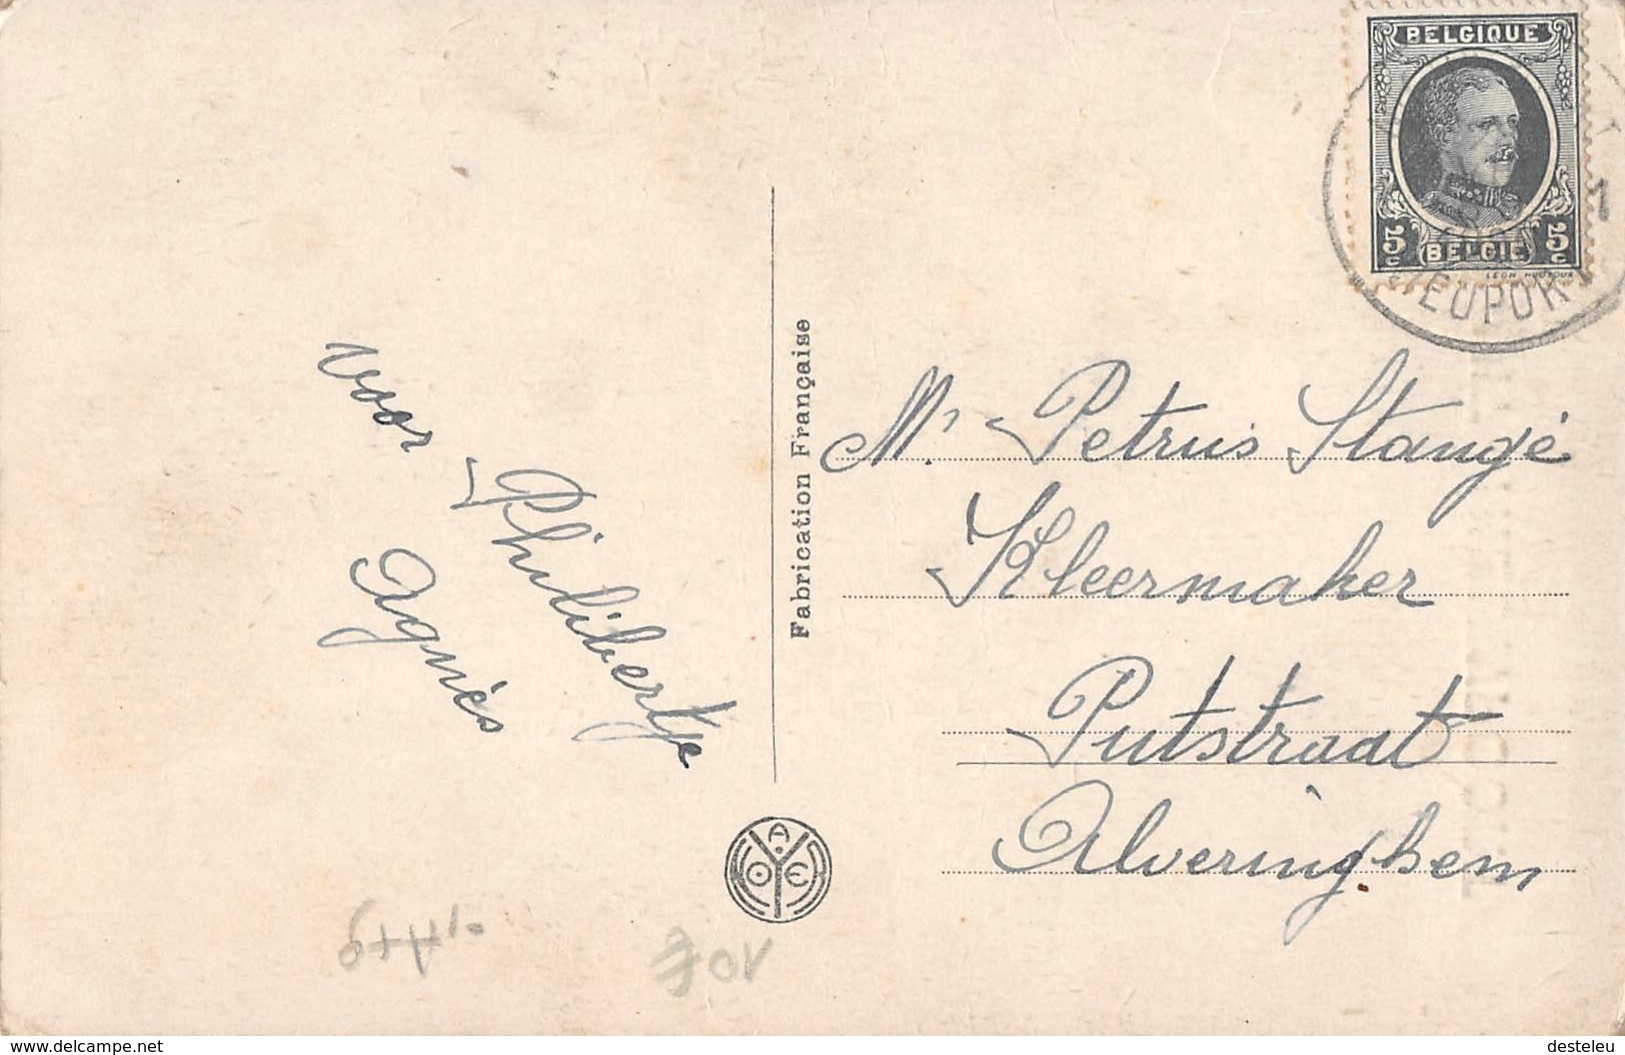 BELGIQUE
5c BELGIE 5c
LEON HUOYOUX
EUPOR
voor
Philibertje
Agnès
Fabrication Française
Mr. Petrus Stangé
Kleermaker
Putstraat
Alveringhem
A
O E
www.delcampe.net
desteleu